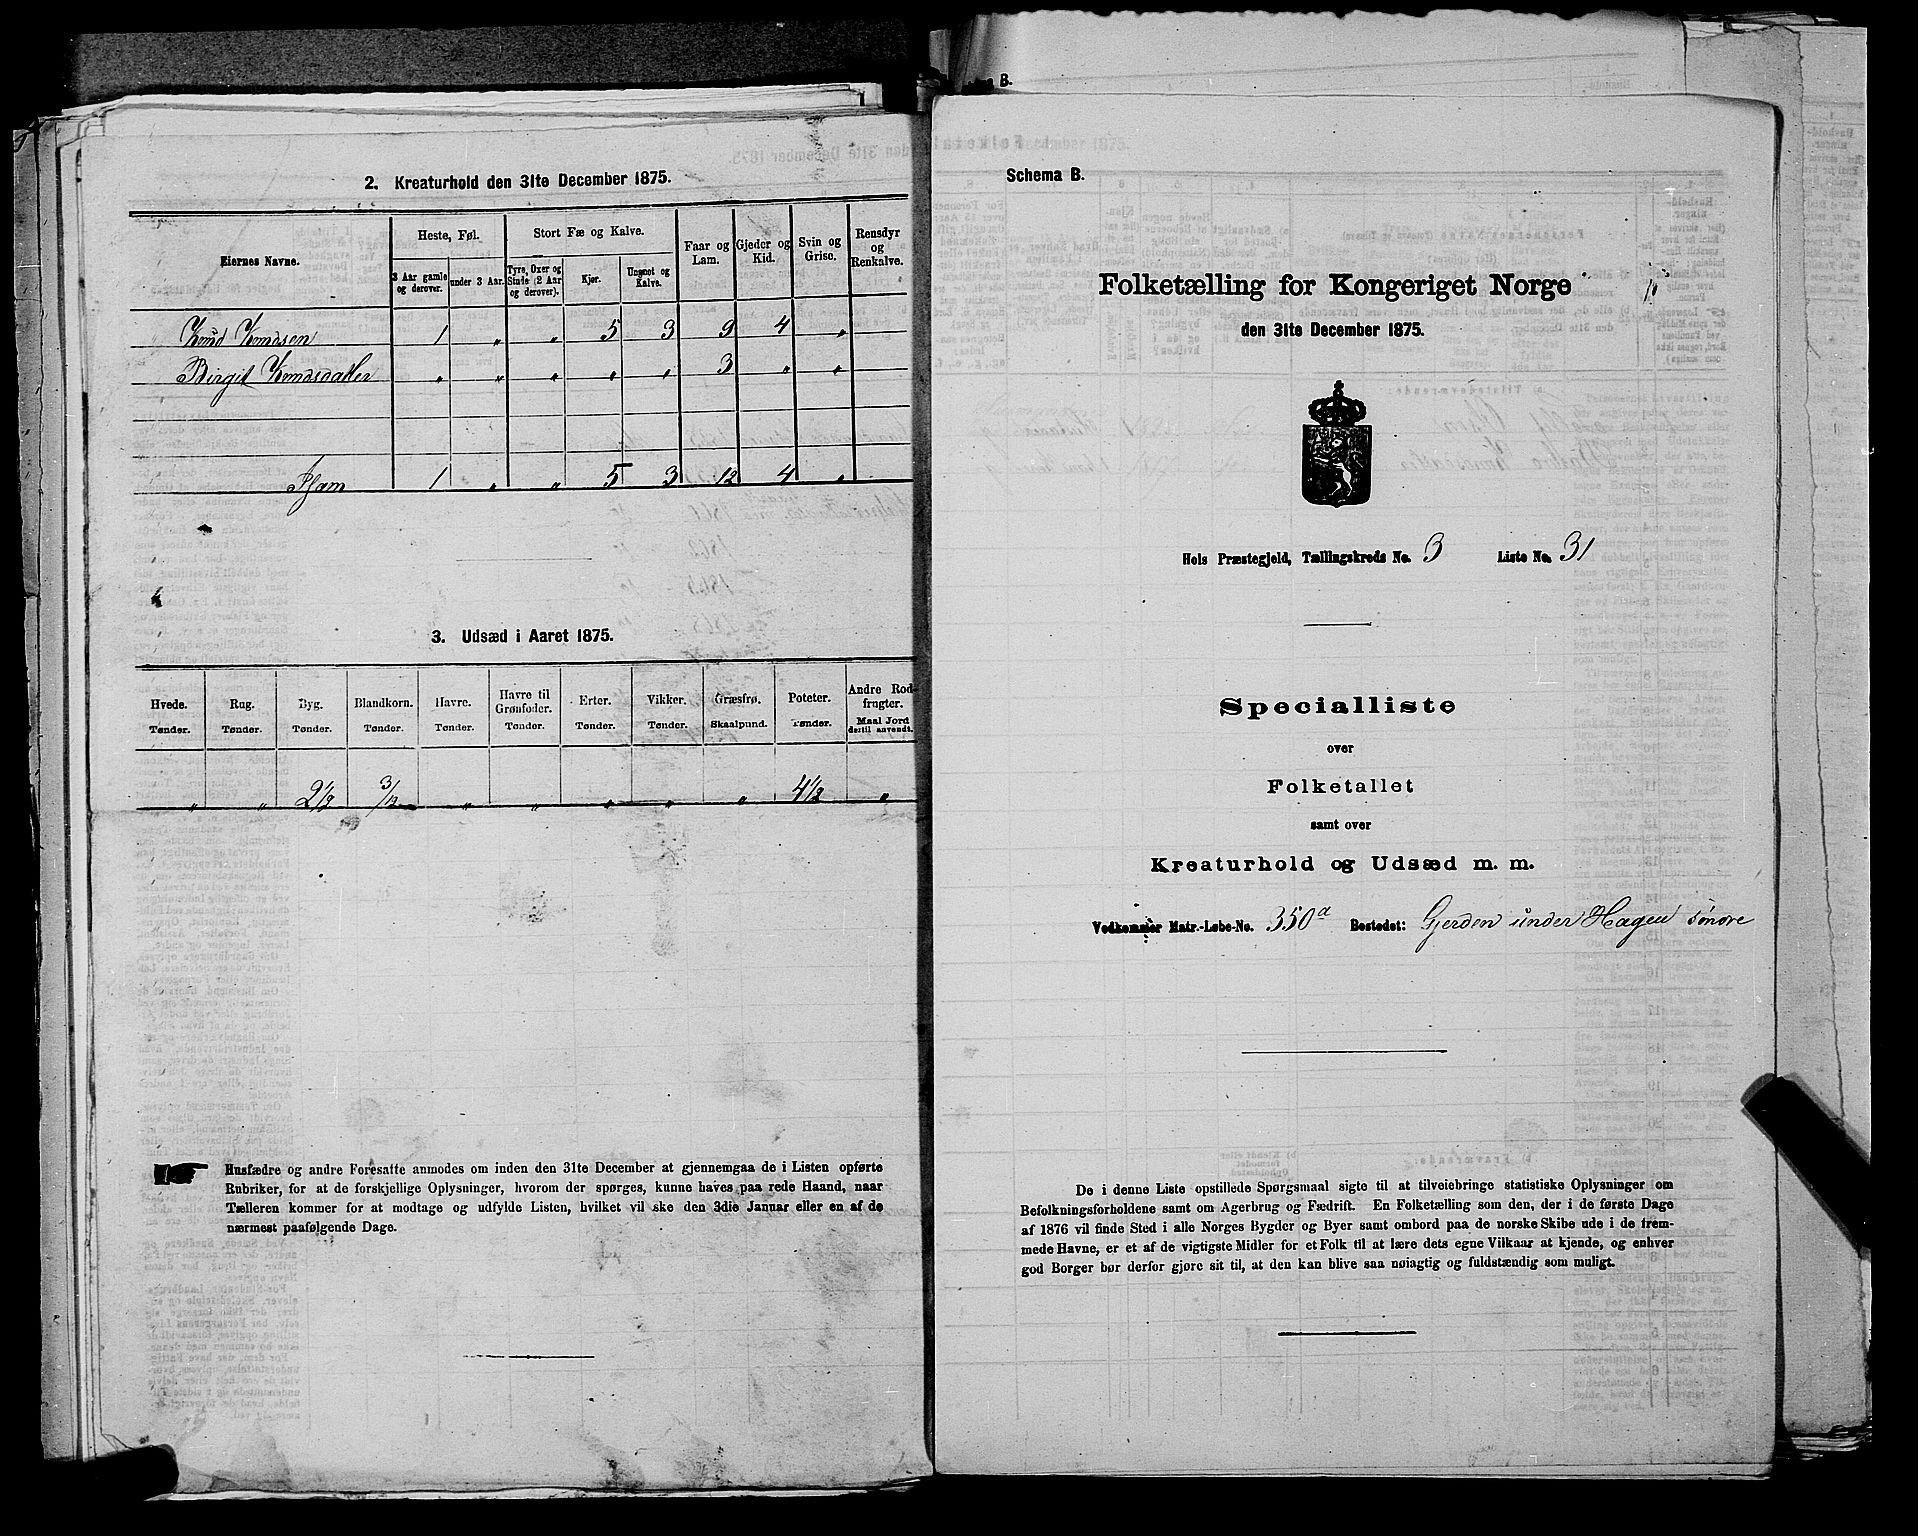 2. Kreaturhold den 31te December 1875.
Eiernes Navne. Heste, Føl. Stort Fæ og Kalve. Faar og Lam. Gjeder og Kid. Svin og Grise. Rensdyr og Renkalve.
3 Aar gamle og derover. under 3 Aar. Tyre, Oxer og Stude (2 Aar og derover). Kjør. Ungnet og Kalve.
Knud Knudsen 1 " " 5 3 9 4 "
Birgit Knudsdatter " " " " " 3 " "
Tilsam 1 " " 5 3 12 4 "
3. Udsæd i Aaret 1875.
Hvede. Rug. Byg. Blandkorn. Havre. Havre til Grønfoder. Erter. Vikker. Græsfrø. Poteter. Andre Rodfrugter.
Tønder. Tønder. Tønder. Tønder. Tønder. Tønder. Tønder. Tønder. Skaalpund. Tønder. Maal Jord dertil anvendt.
" " 2 1/2 3/12 " " " " " 4 1/2 "
Husfædre og andre Foresatte anmodes om inden den 31te December at gjennemgaa de i Listen opførte
Rubriker, for at de forskjellige Oplysninger, hvorom der spørges, kunne haves paa rede Haand, naar
Tælleren kommer for at modtage og udfylde Listen, hvilket vil ske den 3die Januar eller en af de
nærmest paafølgende Dage.
B.
Schema B.
Folketælling for Kongeriget Norge
den 31te December 1875.
Hols Præstegjeld, Tællingskreds No. 3 Liste No. 31
Specialliste
over
Folketallet
samt over
Kreaturhold og Udsæd m. m.
Vedkommer Matr.-Løbe-No. 350a Bostedet: Gjerden under Hagen søndre
De i denne Liste opstillede Spørgsmaal sigte til at tilveiebringe statistiske Oplysninger om
Befolkningsforholdene samt om Agerbrug og Fædrift. En Folketælling som den, der i de første Dage
af 1876 vil finde Sted i alle Norges Bygder og Byer samt ombord paa de norske Skibe ude i de frem-
mede Havne, er et af de vigtigste Midler for et Folk til at lære dets egne Vilkaar at kjende, og enhver
god Borger bør derfor gjøre sit til, at den kan blive saa nøiagtig og fuldstændig som muligt.